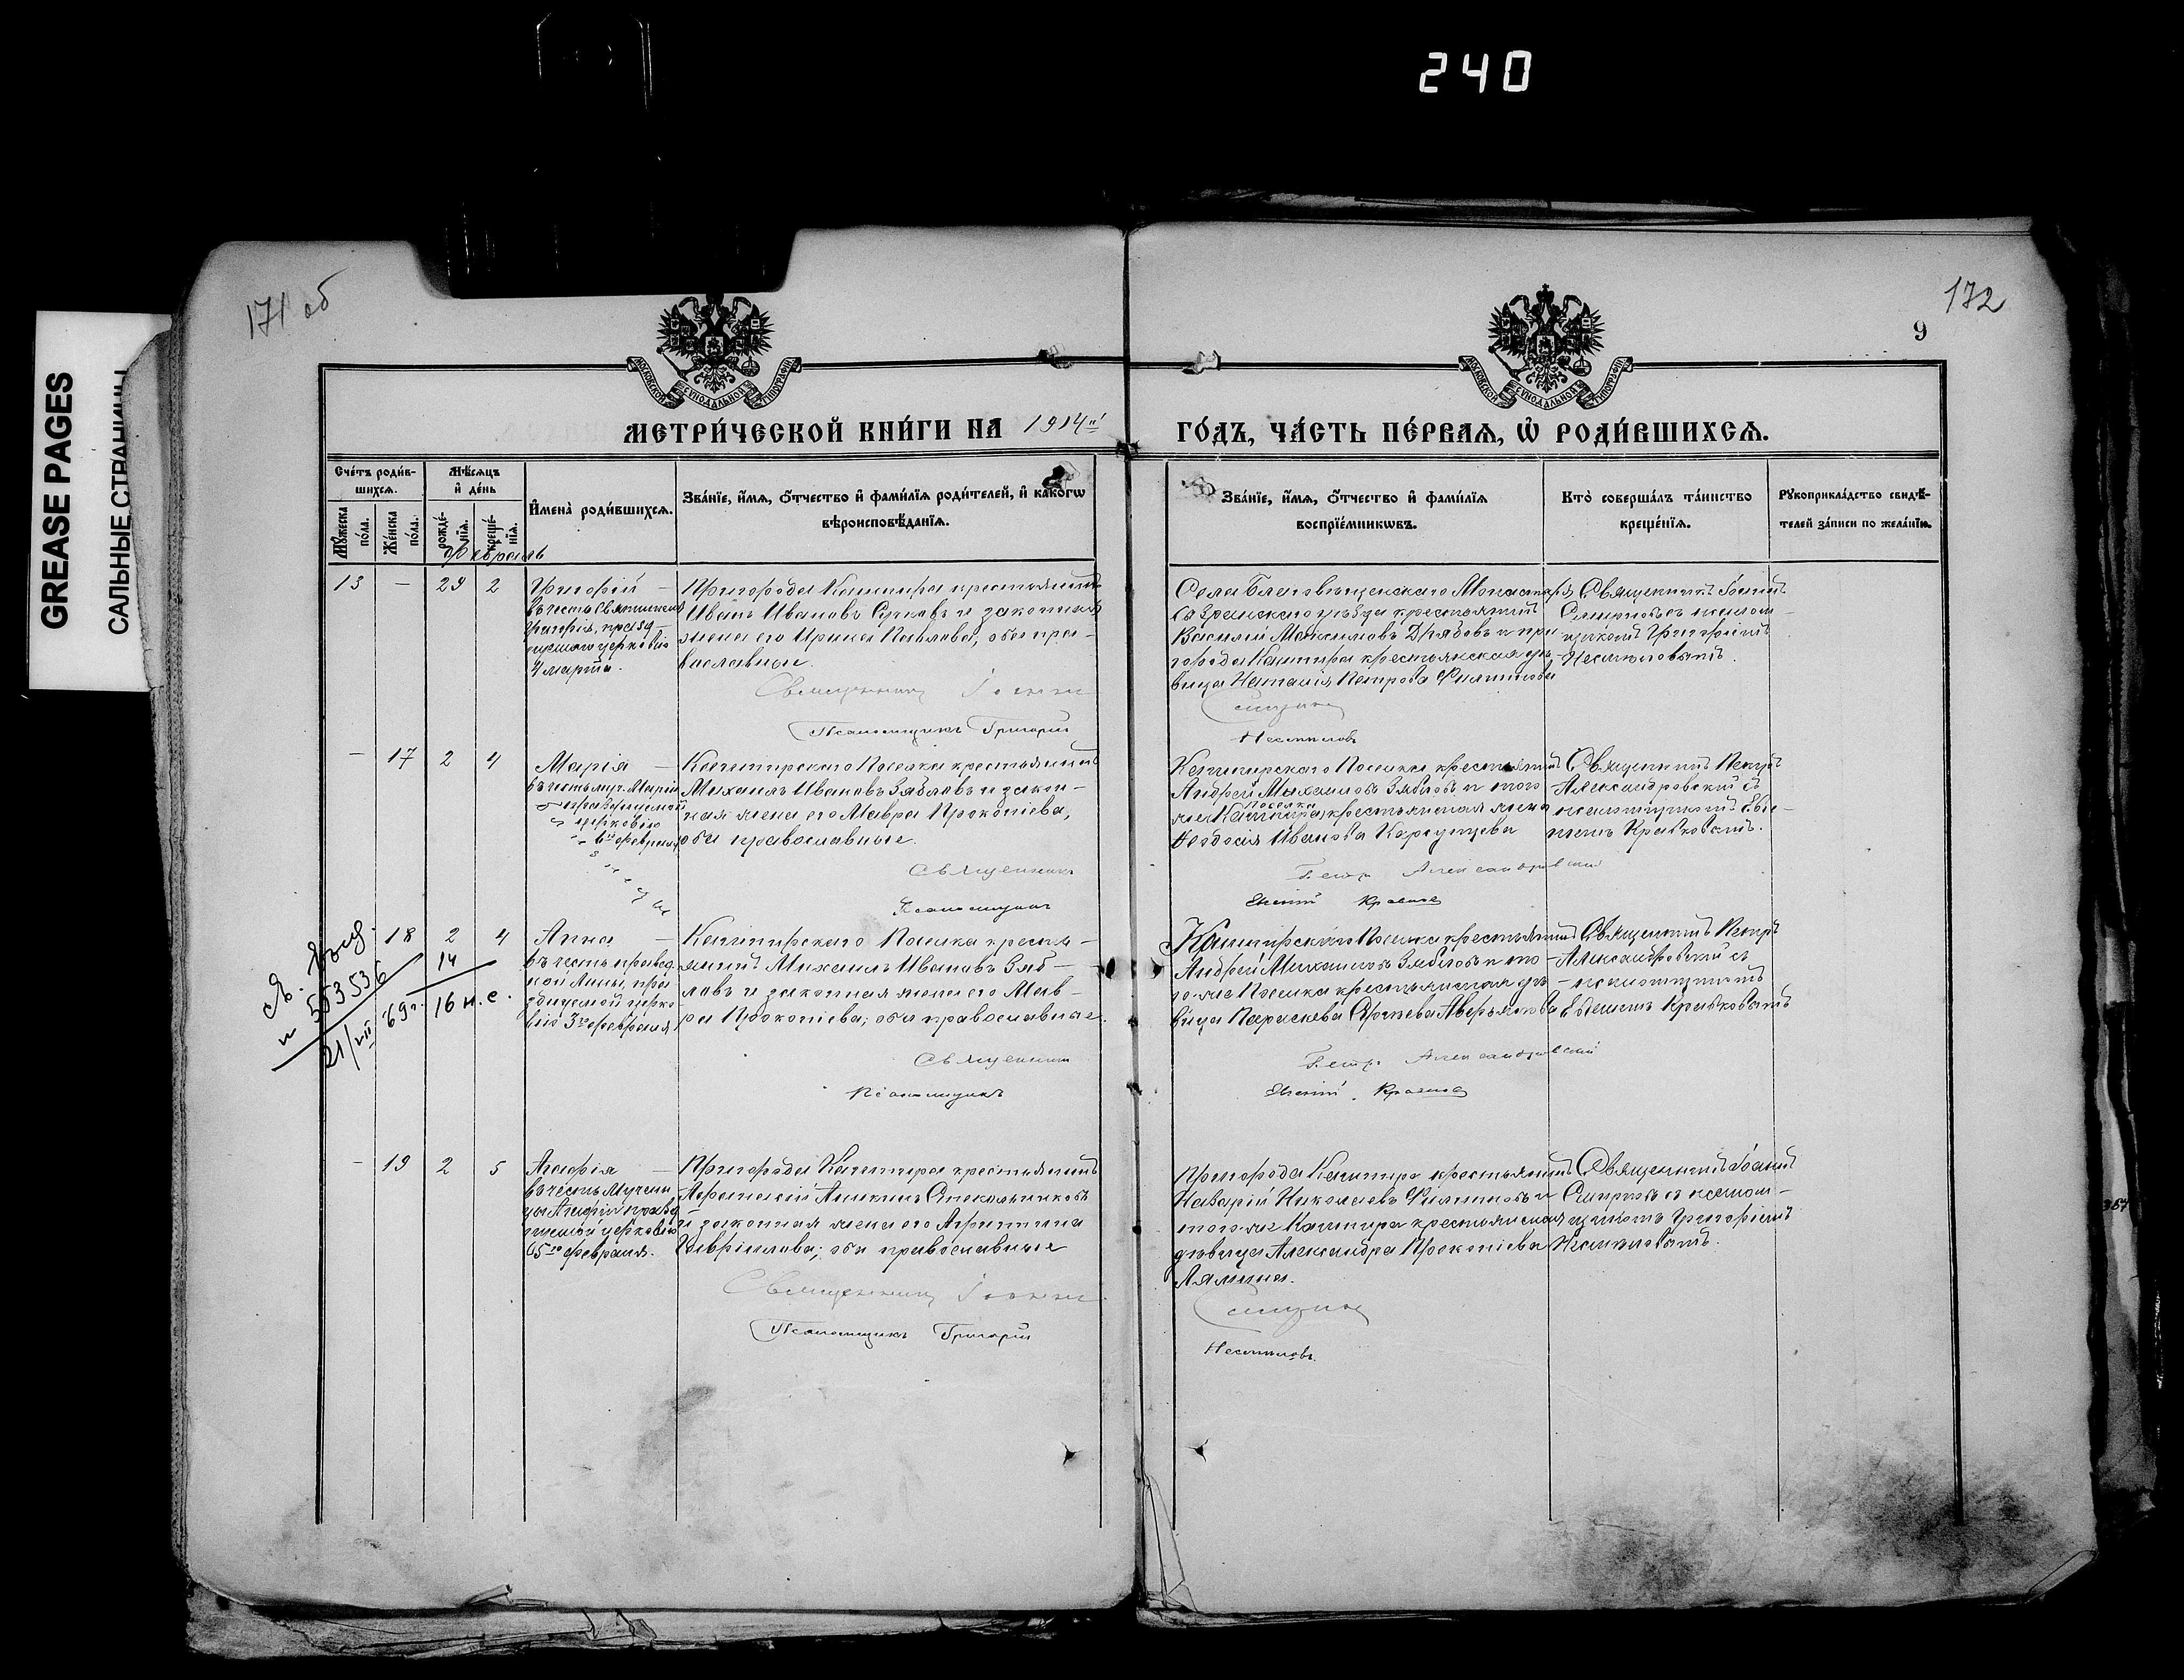 240
GREASE PAGES
САЛЬНЫЕ СТРАНИЦЫ
171 об
172
9
МОСКОВСКОЙ СѴНОДАЛЬНОЙ ТИПОГРАФІИ
МОСКОВСКОЙ СѴНОДАЛЬНОЙ ТИПОГРАФІИ
МЕТРИ́ЧЕСКОЙ КНИ́ГИ НА 1914й ГО́ДЪ, ЧА́СТЬ ПЕ́РВАѦ, Ѡ҆ РОДИ́ВШИХСѦ.
Сче́тъ роди́в-
шихсѧ.
Мꙋ́жеска по́ла.
Же́нска по́ла.
Мѣ́сѧцъ
и҆ де́нь
рожде́-нїѧ.
креще́-нїѧ.
И҆мена̀ роди́вшихсѧ.
Зва́нїе, и҆́мѧ, ѻ҆́тчество и҆ фами́лїѧ роди́телей, и҆ како́гѡ
вѣроисповѣ́данїѧ.
Зва́нїе, и҆́мѧ, ѻ҆́тчество и҆ фами́лїѧ
воспрїе́мникѡвъ.
Кто̀ соверша́лъ та́инство
креще́нїѧ.
Рꙋкоприкла́дство свидѣ́-
телей за́писи по жела́нїю.
Февраль
13 — 29 2
Григорій —
въ честь Священном
Григорія, празд-
нуемаго церковію
4 марта.
Пригорода Кашпира крестьянинъ
Иванъ Ивановъ и законная
жена его Ирина Павлова, оба пра-
вославные.
Священникъ Іоаннъ
Псаломщикъ Григорій
Села Благовѣщенскаго Монастыря
Сызранскаго уѣзда крестьянинъ
Василій Максимовъ и при-
города Кашпира крестьянская дѣ-
вица Наталія Петрова Филиппова
Смирновъ
Несмѣловъ
Священникъ Іоаннъ
Смирновъ съ псалом-
щикомъ Григоріемъ
Несмѣловымъ.
— 17 2 4
Марія —
въ честь муч. Маріи
празднуемой
церковію
6го февраля
Кашпирскаго Поселка крестьянинъ
Михаилъ Ивановъ Зябловъ и закон-
ная жена его Мавра Прокопіева,
оба православные.
Священникъ
Псаломщикъ
Кашпирскаго Поселка крестьянинъ
Андрей Михаиловъ Зябловъ и того
же поселка Кашпира крестьянская жена
Ѳеодосія Иванова
Петръ Александровскій
Евгеній
Священникъ Петръ
Александровскій съ
псаломщикомъ Евге-
ніемъ
18 2 4
Анна —
въ честь правед
ной Анны, праз
днуемой церко
вію 3го февраля
св. выд.
№ 553536
21/VII 69г.
14
16 н. с.
Кашпирскаго Поселка крестья-
нинъ Михаилъ Ивановъ Зяб-
ловъ и законная жена его Мав-
ра Прокопіева; оба православные.
Священникъ
Псаломщикъ
Кашпирскаго Поселка крестьянинъ
Андрей Михаиловъ Зябловъ и то-
го-же Поселка крестьянская дѣ-
вица Параскева Аверьянова
Петръ Александровскій
Евгеній
Священникъ Петръ
Александровскій съ
псаломщикомъ
Евгеніемъ
— 19 2 5
Агафія —
въ честь мучени
цы Агафіи празд
нуемой церковію
5го февраля.
Пригорода Кашпира крестьянинъ
Афанасій Аникинъ
и законная жена его Агрипина
Гавріилова; оба православные
Священникъ Іоаннъ
Псаломщикъ Григорій
Пригорода Кашпира крестьянинъ
Назарій Николаевъ Филипповъ и
того же Кашпира крестьянская
дѣвица Александра Прокопіева
Лямина.
Смирновъ
Несмѣловъ.
Священникъ Іоаннъ
Смирновъ съ псалом-
щикомъ Григоріемъ
Несмѣловымъ.